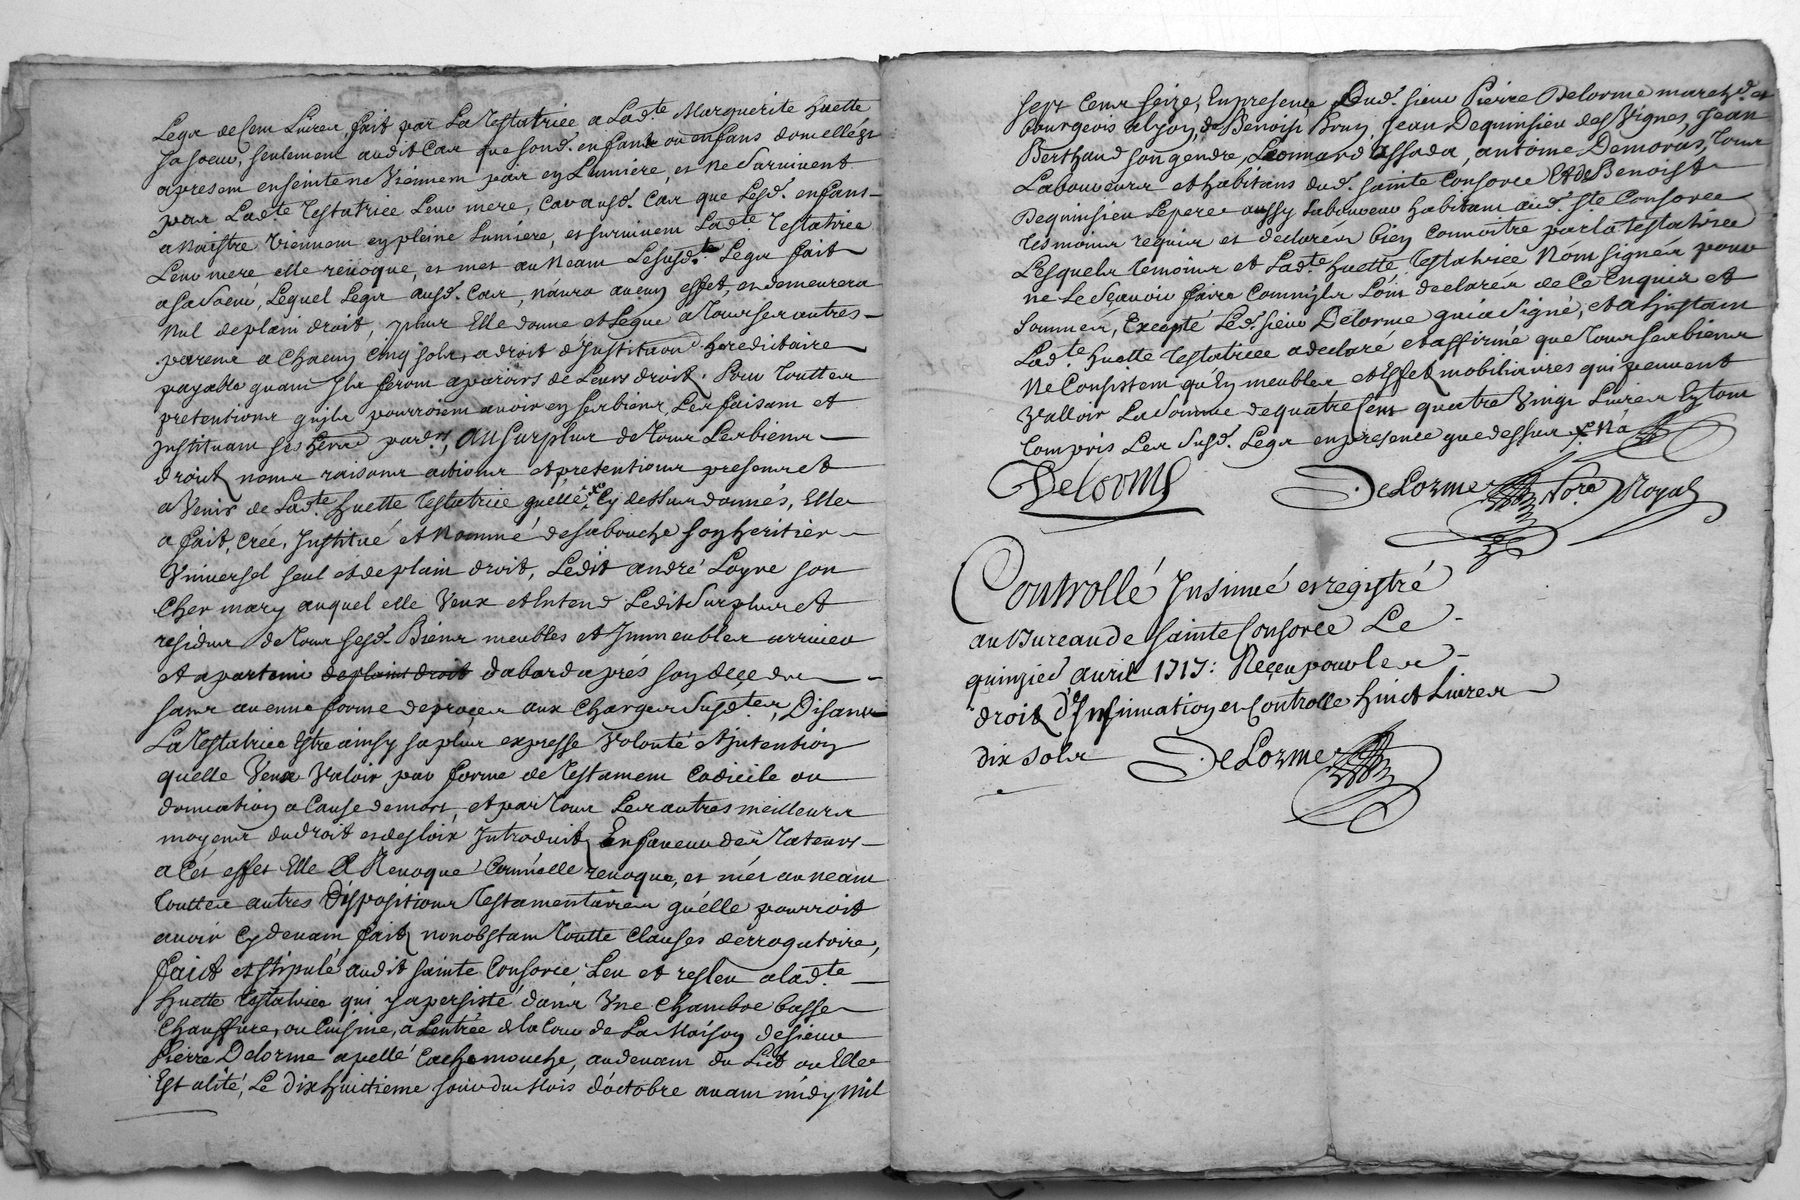 Legat de Cent Livres fait par La Testatrice a Lad.te Marguerite huette
sa soeur, seulement audit Cas que sond. enfant ou enfans dont elle est
apresent enseinte ne Viennent pas en Lumiere, et ne Survivent
pas Lad.te Testatrice Leur mere, Car ausd. Cas que Lesd. enfans
a Naistre Viennent en pleine Lumiere, et survivent Lad.te Testatrice
Leur mere elle revoque, et met au Neant Lesusd.t Legat fait
a sa Soeur, Lequel Legat ausd. Cas, n'aura aucun effet, et demeurera
Nul de plain droit, plus Elle donne et Legue a Tous ses autres
parens a Chacun Cinq sols, a droit d'Institution hereditaire
payable quant Ils feront aparoirs de Leurs droits. Pour Touttes
pretentions qu'ils pourroient avoir en ses biens, Les faisant et
Instituant ses her. par.rs, Au Surplus de Tous Les biens
droits noms raisons actions et pretentions presens et
a Venir de Lad.te huette Testatrice qu'elle Cy dessus donnés, Elle
a fait, Créé, Institué et Nommé de sa bouche son heritier
Vniversel seul et de plain droit, Ledit andré Loyve son
Cher mary auquel elle Veux et Intend Ledit Surplus et
residus de Tous sesd. Biens meubles et Immeubles arriver
et apartenir de plains droit dabord aprés son decedre
sans aucune forme de procer aux Charges Susd.tes, Disant
La Testatrice Estre ainsy sa plus expresse Volonté et Intention
quelle Veux Valoir par forme de Testament Codicile ou
donnation a Cause de mort, et par Tous Les autres meilleurs
moyens du droit et des loix Introduits En faveur des Tateurs
a Cet effet Elle A Revoqué Comm'elle revoque, et met au neant
Touttes autres Dispositions Testamentaires qu'elle pourroit
avoir Cydevant faits nonobstant Toutte Clauses derrogatoire,
faict et stipulé audit sainte Consorce Leu et resleu a lad.te
huette Testatrice qui y a persisté dans Vne Chambre basse
Chauffure, ou Cuisine, a Lentrée de la Cour de La Maison de sieur
Pierre Delorme apellé Cachemouche, audevant du Lict ou Elle
Est alité, Le dixhuitieme jour du Mois d'octobre avant midy Mil
sept Cens seize, En presence Dud. sieur Pierre Delorme march.d et
bourgeois de Lyon, de Benoist Brun, Jean Dequinsieu des Vignes, Jean
Berthaud son gendre, Leonnard Assada, antoine Demoras, Tous
Laboureurs et habitans dud. sainte Consorce Et de Benoist
Dequinsieu Le pere aussy Laboureur habitant aud. Ste Consorce
Tesmoins requis et declarés bien Connoitre par la testatrice
Lesquels Temoins et Lad.te huette Testatrice N'ont signés pour
ne Le Sçavoir faire Comm'ils L'ont declarés de Ce Enquis et
Sommés, Excepté Led. sieur Delorme qui a signé, et a L'instant
Lad.te huette Testatrice a declaré et affirmé que Tous ses biens
Ne Consistent qu'En meubles et Effets mobiliaires qui peuvent
Valloir La Somme de quatre Cens quatre Vingt Livres Ey tout
Compris Les Susd. Legat en presence que dessus
Delorme DeLorme Nore Royal
Controllé Insinué enregistré
au Bureau de sainte Consorce Le
quinzie avril 1717: Receu pour les
droits d'Insinuation et Controlle huict Livres
dix sols DeLorme